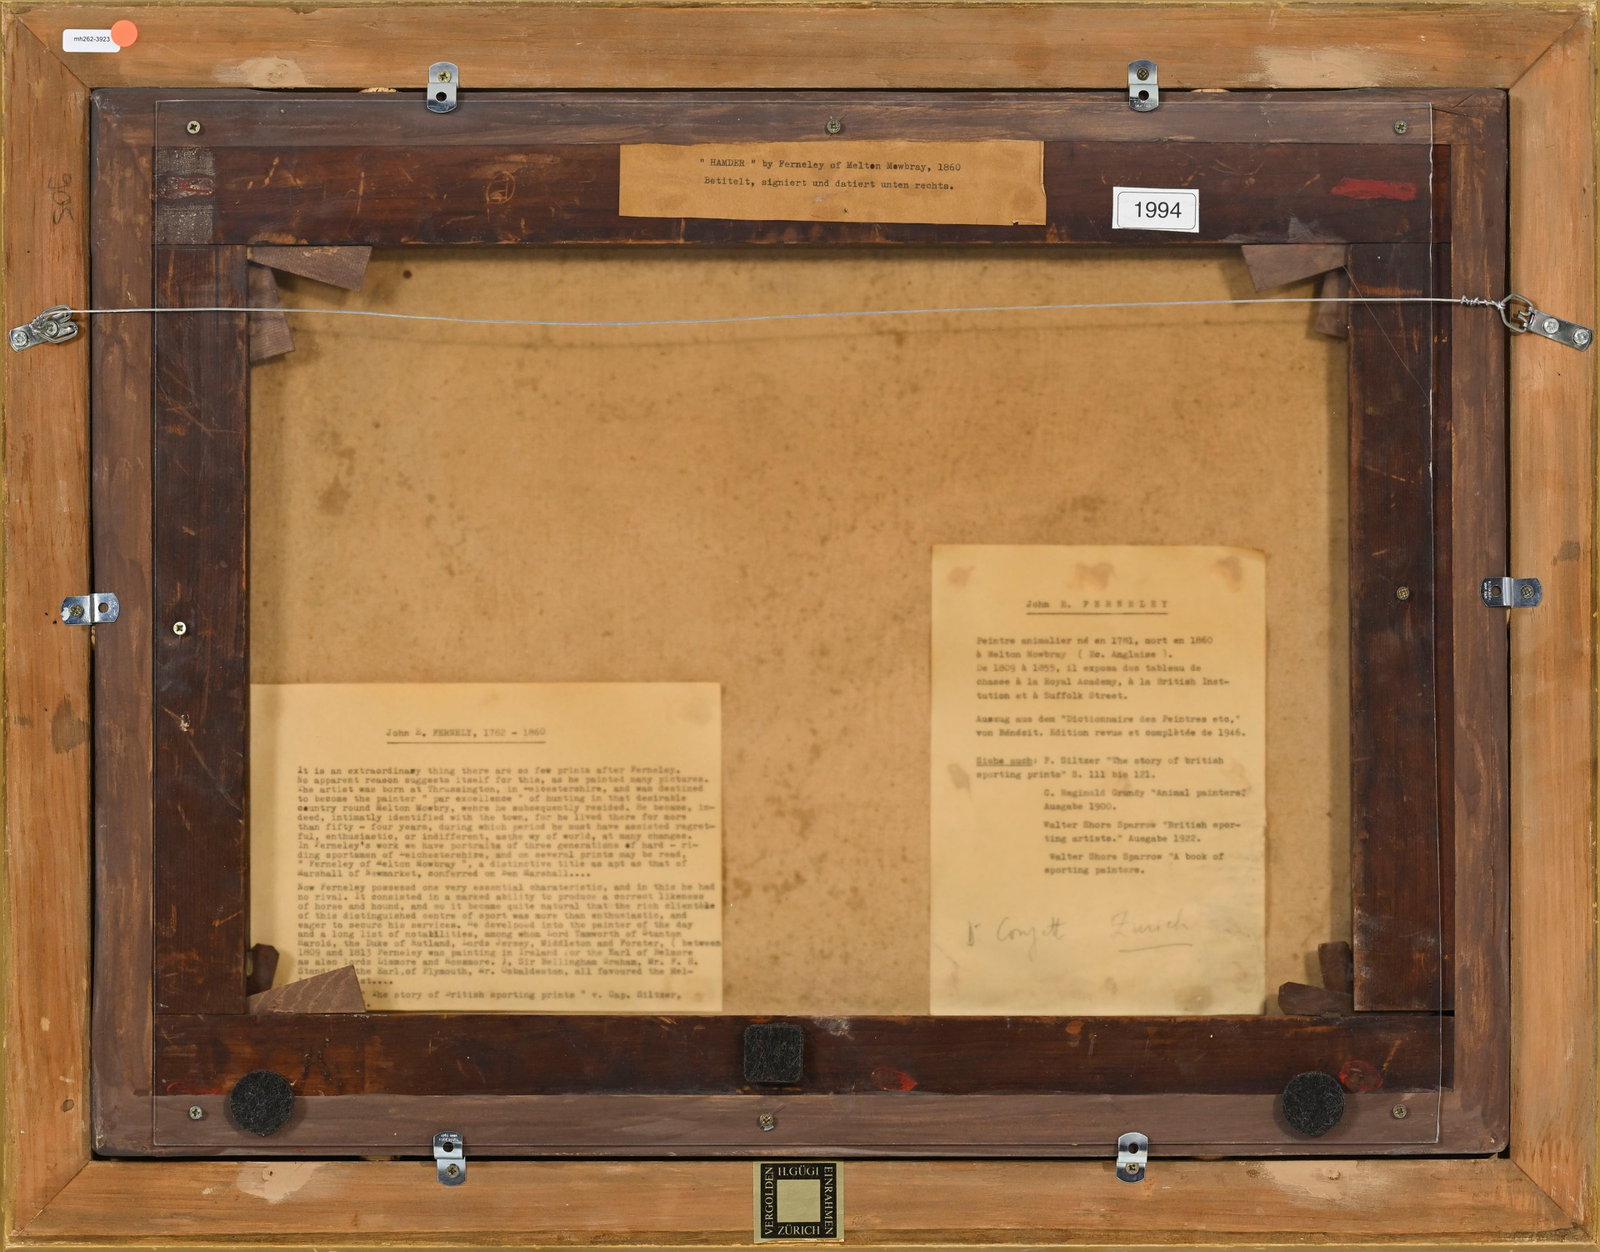 mh262-3923
" HAMDER " by Ferneley of Melton Mowbray, 1860
Betitelt, signiert und datiert unten rechts.
1994
505
John E. FERNELY, 1782 - 1860
It is an extraordinary thing there are so few prints after Ferneley.
No apparent reason suggests itself for this, as he painted many pictures.
The artist was born at Thrussington, in Leicestershire, and was destined
to become the painter " par excellence " of hunting in that desirable
country round Melton Mowbry, wehre he subsequently resided. He became, in-
deed, intimately identified with the town, for he lived there for more
than fifty - four years, during which period he must have assisted regret-
ful, enthusiastic, or indifferent, asthe wy of world, at many changes.
In Ferneley's work we have portraits of three generations of hard - ri-
ding sportsmen of Leichestershire, and on several prints may be read,
" Ferneley of Melton Mowbray ", a distinctive title as apt as that of
Marshall of Newmarket, conferred on Ben Marshall....
Now Ferneley possessed one very essential charateristic, and in this he had
no rival. It consisted in a marked ability to produce a correct likeness
of horse and hound, and so it became quite natural that the rich clientèle
of this distinguished centre of sport was more than enthusiastic, and
eager to secure his services. He develpoed into the painter of the day
and a long list of notabilities, among whom Lord Tamworth of Stanton
Harold, the Duke of Rutland, Lords Jersey, Middleton and Forster, ( between
1809 and 1813 Ferneley was painting in Ireland for the Earl of Belmore
as also lords Lismore and Rossmore. ), Sir Bellingham Graham, Mr. F. H.
Stand the Earl,of Plymouth, Mr. Osbaldeston, all favoured the Mel-
st....
The story of British sporting prints " v. Cap. Siltzer,
John E. FERNELEY
Peintre animalier né en 1781, mort en 1860
à Melton Mowbray ( Ec. Anglaise ).
De 1809 à 1855, il exposa des tableau de
chasse à la Royal Academy, à la British Inst-
tution et à Suffolk Street.
Auszug aus dem "Dictionnaire des Peintres etc,"
von Bénézit. Edition revue et complètée de 1946.
Siehe auch: F. Siltzer "The story of british
sporting prints" S. 111 bis 121.
G. Reginald Grundy "Animal painters"
Ausgabe 1900.
Walter Shore Sparrow "British spor-
ting artists." Ausgabe 1922.
Walter Shore Sparrow "A book of
sporting painters.
Zürich
VERGOLDEN
H.GÜGI
EINRAHMEN
ZÜRICH